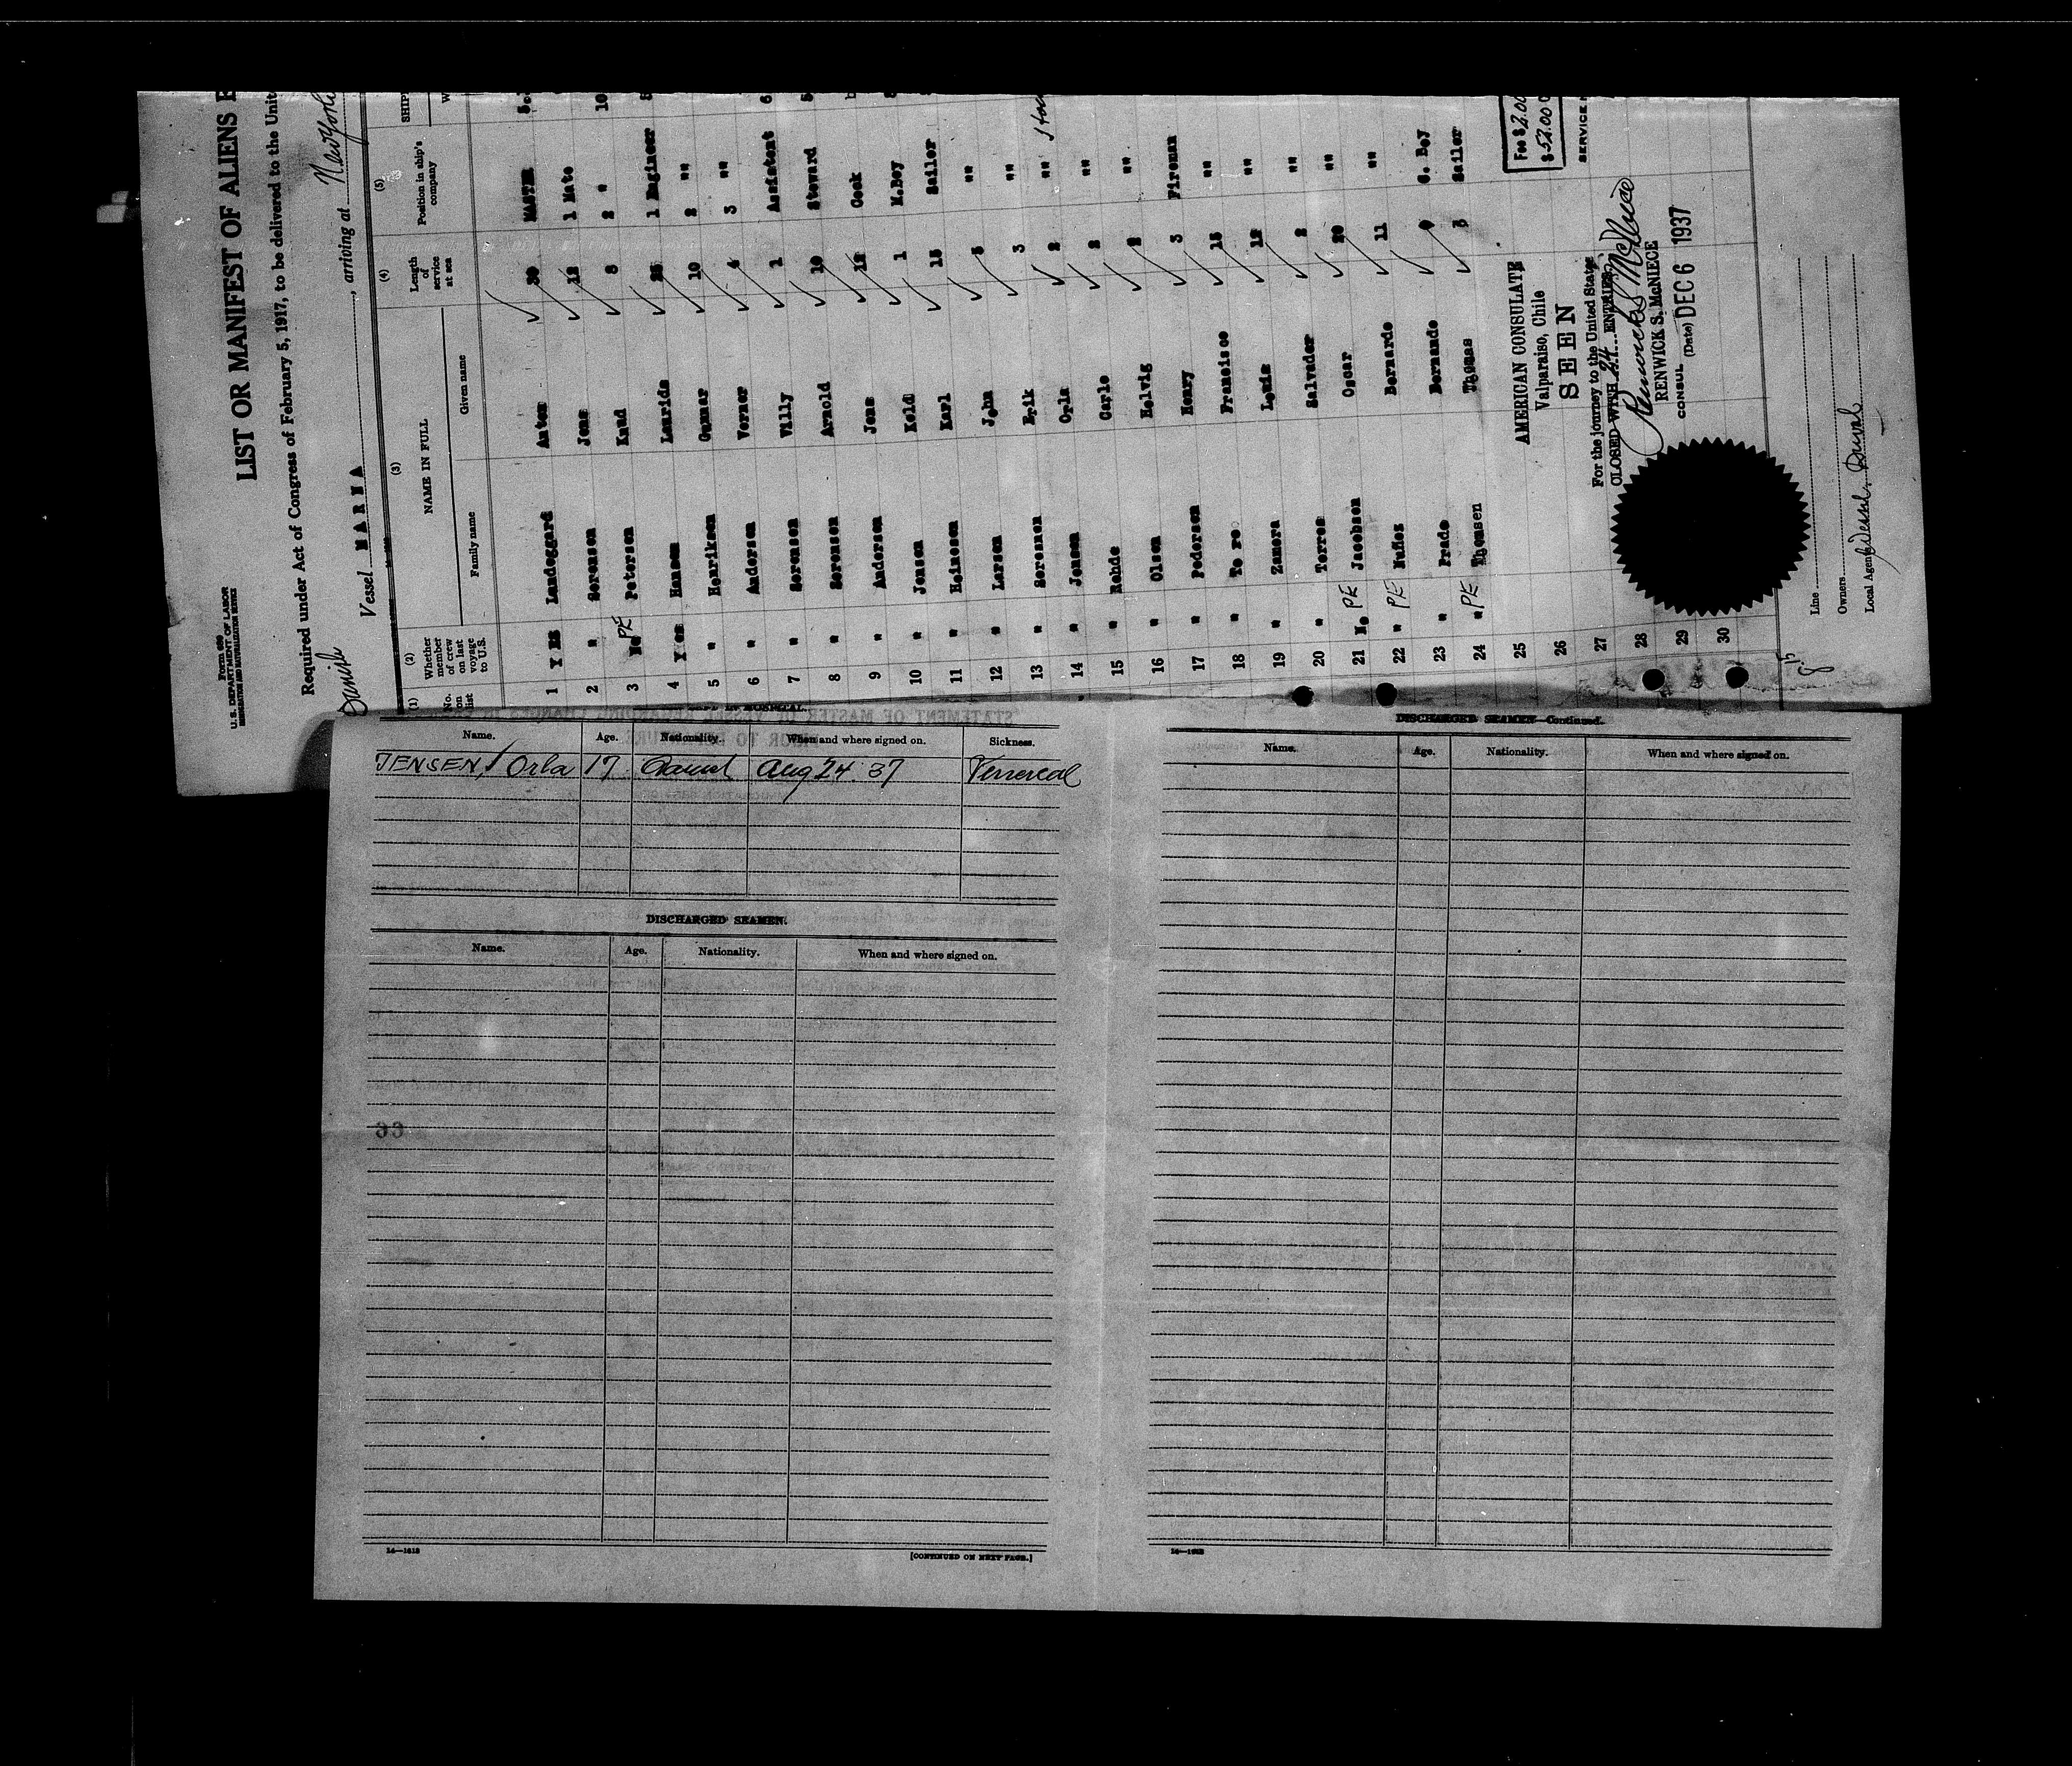 Form 689
U.S. DEPARTMENT OF LABOR
IMMIGRATION AND NATURALIZATION SERVICE
LIST OR MANIFEST OF ALIENS E
Required under Act of Congress of February 5, 1917, to be delivered to the Unit
Danish
Vessel MARNA, arriving at New York
(1) (2) (3) (4) (5)
No. on list
Whether member of crew on last voyage to U.S.
NAME IN FULL
Family name Given name
Length of service at sea
Position in ship's company
SHIP
W
1 YES Landeggard Anton 30 MASTER
2 " Sorensen Jens 12 1 Mate
3 No PE Petersen Knud 8 2 " 10
4 Yes Hansen Laurids 25 1 Engineer
5 " Henriksen Gunnar 10 2 ""
6 " Andersen Verner 4 3 ""
7 " Sorensen Villy 1 Assistent 6
8 " Sorensen Arnold 10 Steward 5
9 " Andersen Jens 12 Cook
10 " Jensen Keld 1 M.Boy
11 " Heinesen Karl 15 Sailer
12 " Larsen John 5 ""
13 " Soresnen Erik 3 ""
14 " Jensen Orla 2 ""
15 " Rohde Carlo 2 ""
16 " Olsen Helvig 2 ""
17 " Pedersen Henry 3 Fireman
18 " Toro Francisco 15 ""
19 " Zamora Louis 12 ""
20 " Torres Salvador 2 ""
21 No PE Jacobsen Oscar 20 ""
22 " PE Nuñez Bernardo 11 ""
23 " Prado Bernando C. Boy
24 " PE Thomsen Thomas 3 Sailer
25
26
27
28
29
30
AMERICAN CONSULATE
Valparaiso, Chile
SEEN
For the journey to the United States
CLOSED WITH 24 ENTRIES
Renwick S. McNiece
RENWICK S. McNIECE
CONSUL (Date) DEC 6 1937
Fee $2.00
$52.00
SERVICE
Line
Owners
Local Agent
IN HOSPITAL.
Name. Age. Nationality. When and where signed on. Sickness.
JENSEN, Orla 17 Danish Aug 24. 37 Venereal
DISCHARGED SEAMEN.
Name. Age. Nationality. When and where signed on.
14—1618
[CONTINUED ON NEXT PAGE.]
DISCHARGED SEAMEN—Continued.
Name. Age. Nationality. When and where signed on.